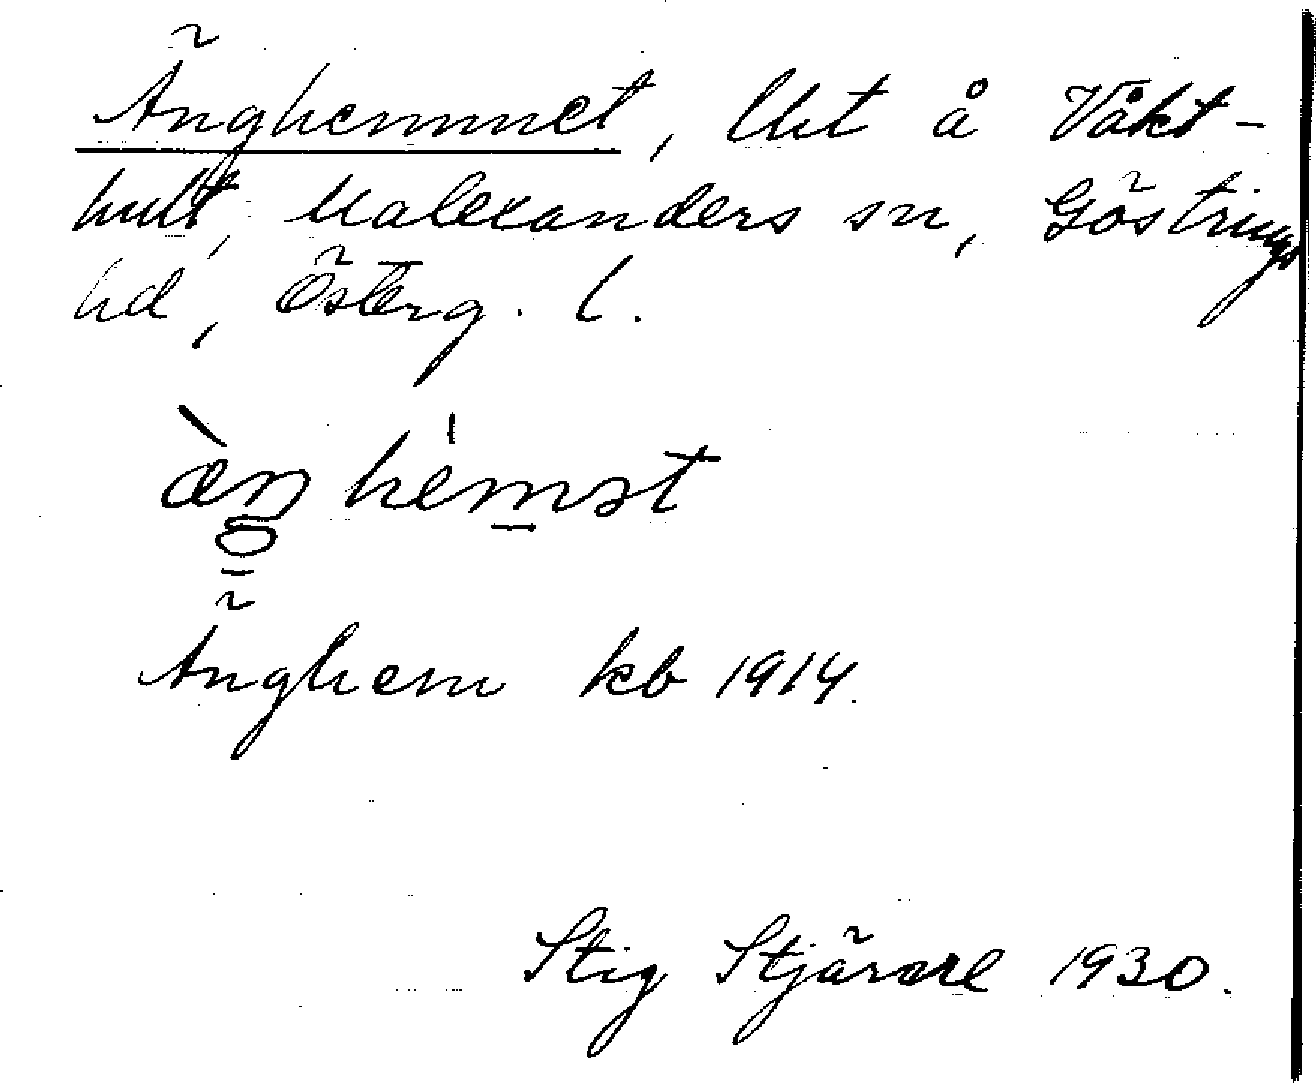 Änghemmet, lht å Våkt-
hult, Malexanders sn, Göstrings
hd, Österg. l.
Änghem kb 1914.
Stig Stjärare 1930.